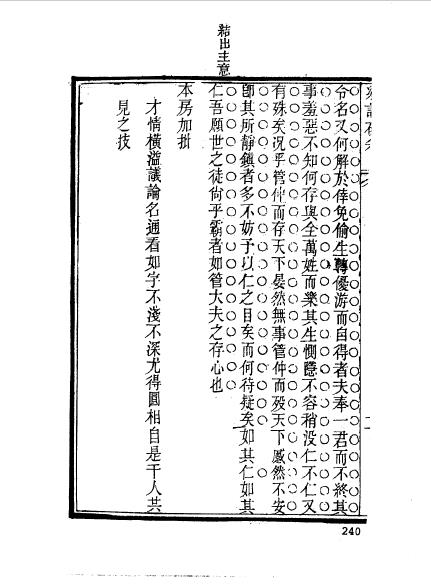 結出主意
令名又何解於倖免偷生轉優游而自得者夫奉一君而不終其
事羞惡不知何存與全萬姓而樂其生惻隱不容稍没仁不仁又
有殊矣況乎管仲而存天下晏然無事管仲而殁天下慼然不安
卽其所靜鎮者多不妨予以仁之目矣而何待疑矣如其仁如其
仁吾願世之徒尙乎霸者如管大夫之存心也
本房加批
才情橫溢議論名通看如字不淺不深尤得圓相自是千人共
見之技
240